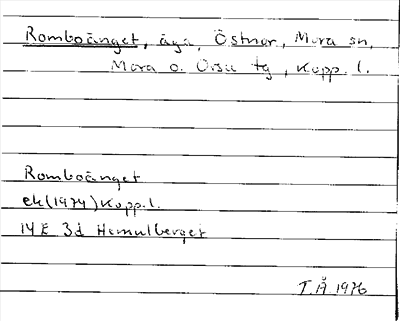 Romboänget, äga, Östnor, Mora sn,
Mora o. Orsa tg, Kopp. l.
Romboänget
ek(1974)Kopp.l.
14E 3d Hemulberget
T.Å 1976